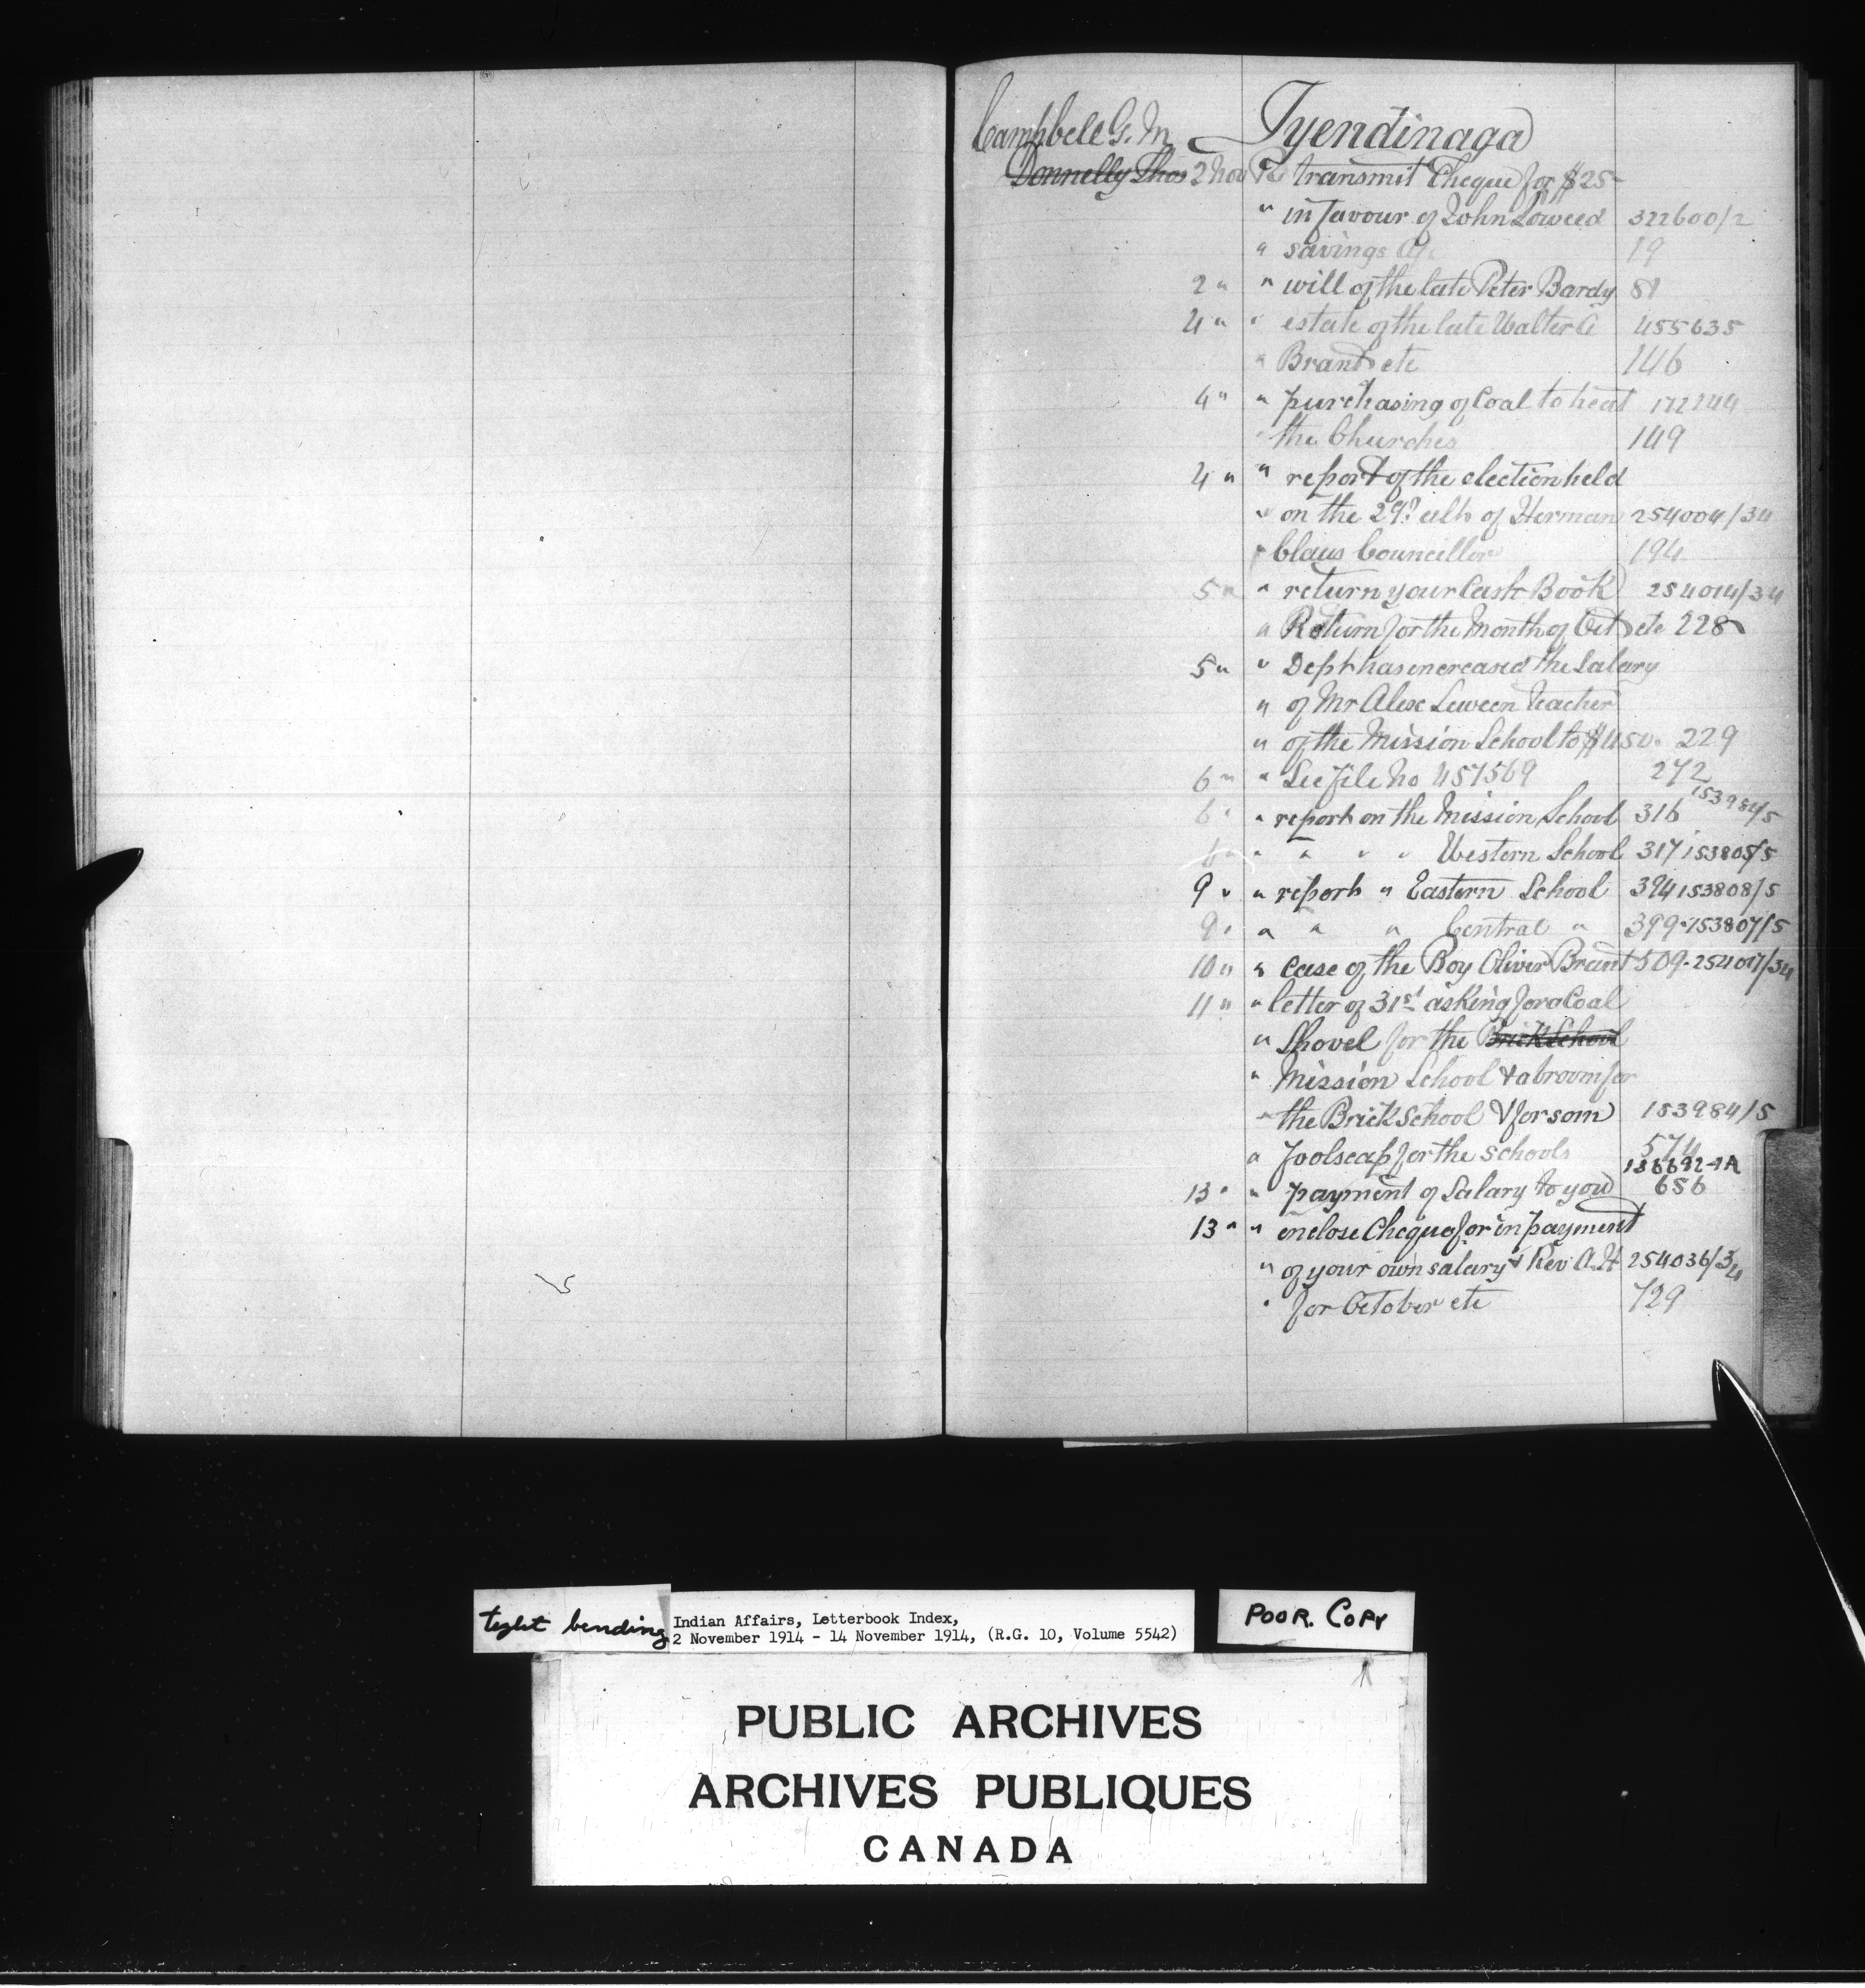 Campbell G. M. Tyendinaga
Donnelly Thos 2 Nov Re transmit Cheque for $25-
" in favour of John Loweed 322600/2
" savings a/c 19
2 " " will of the late Peter Bardy 81
4 " " estate of the late Walter A 455635
" Brant etc 146
4 " " purchasing of Coal to heat 172244
" the Churches 149
4 " " report of the election held
" on the 29th ult of Herman 254004/34
" Claus Councillor 194
5 " " return your Cash Book 254014/34
" Return for the Month of Oct etc 228
5 " " Dept has increased the Salary
" of Mr Alex Leween teacher
" of the Mission School to $450. 229
6 " " See file No 457569 272
6 " " report on the Mission School 316 153984/5
6 " " " " " Western School 317 153805/5
9 " " report " Eastern School 394 153808/5
9 " " " " Central " 399-153807/5
10 " " case of the Boy Oliver Brant 509-254017/34
11 " " letter of 31st asking for a Coal
" Shovel for the Brick School
" Mission School & a broom for
" the Brick School & for som 153984/5
" foolscap for the schools 574
136692-1A
13 " " payment of Salary to you 656
13 " " enclose Cheque for in payment
" of your own salary & Rev A.H 254036/34
" for October etc 729
tight bending
Indian Affairs, Letterbook Index,
2 November 1914 - 14 November 1914, (R.G. 10, Volume 5542)
POOR. COPY
PUBLIC ARCHIVES
ARCHIVES PUBLIQUES
CANADA